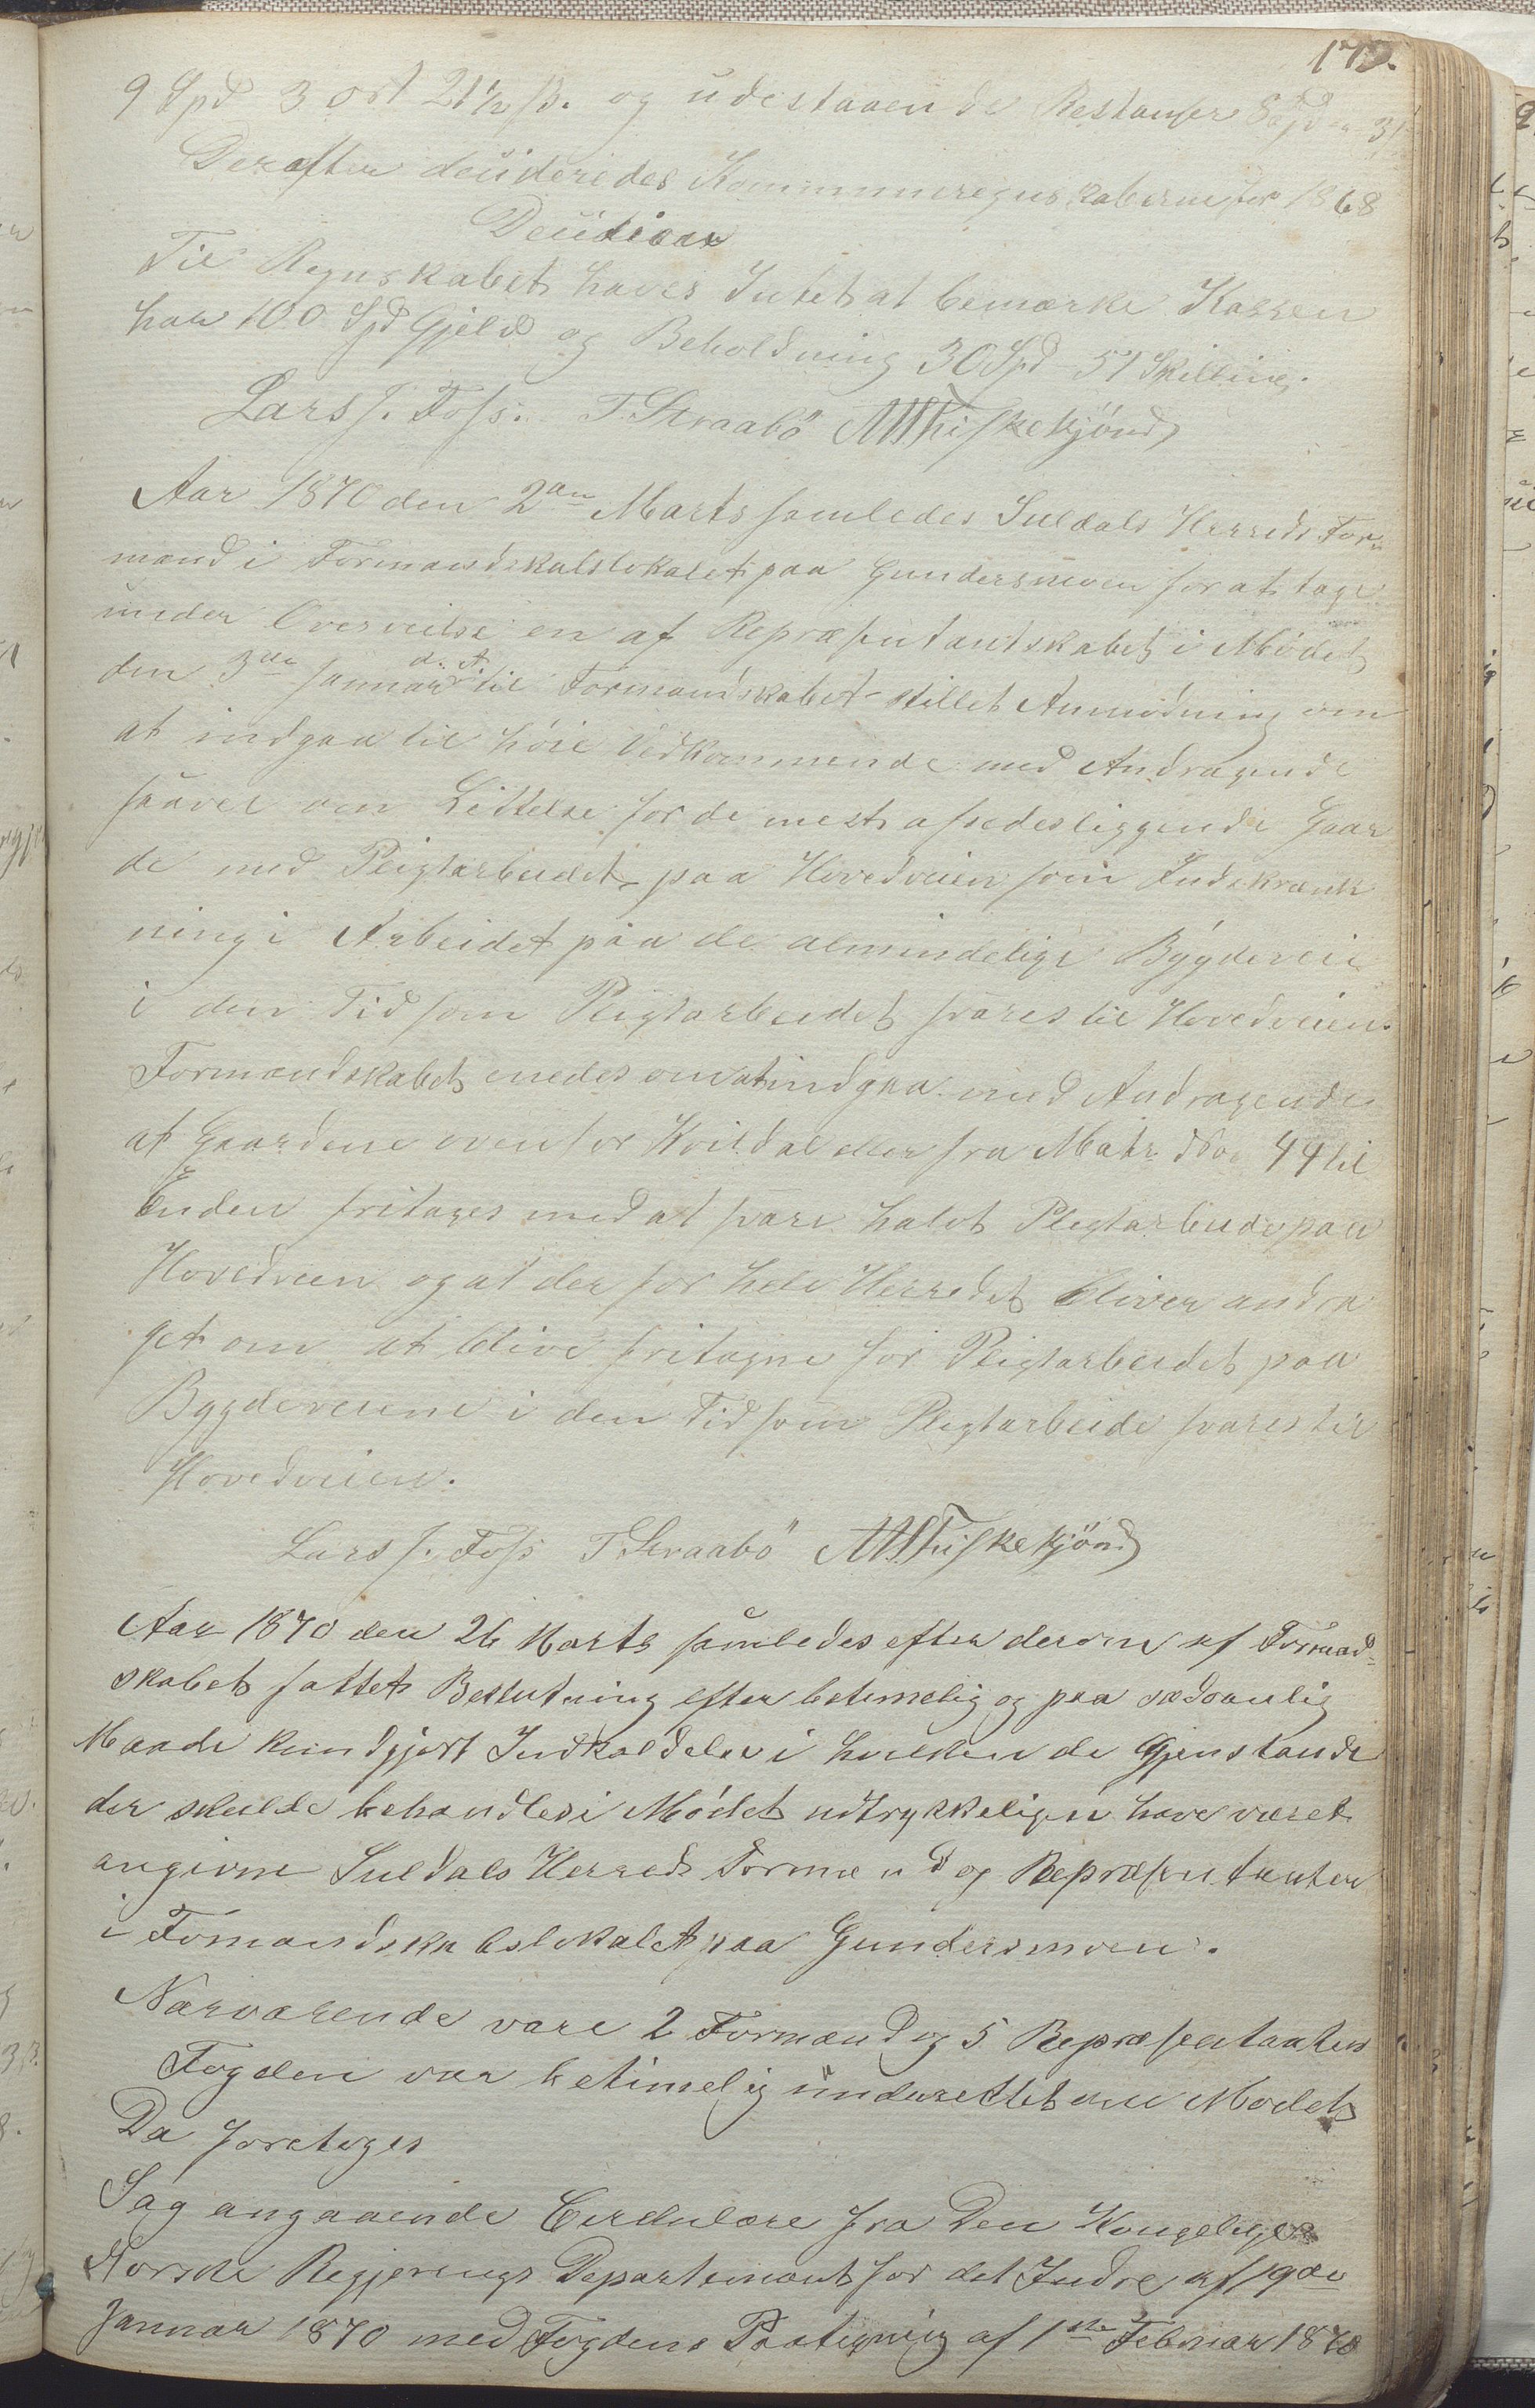 179.
9 Spd 3 ort 21½ ß. og udestaaende Restanser
Derefter desideredes Kommuneregnskaberne for 1868
Til Regnskabet haves Intet at bemærke Kassen
har 100 Spd Gjeld og Beholdning 30 Spd 51 Skilling.
Lars J. Foss. T. Straabö Fiskekjönd
Aar 1870 den 2den Marts samledes Suldals Herreds For-
mænd i Formandskabslokalet paa Gundersmoen for at tage
under Overveielse en af Repræsentantskabet i Mødet
den 3die Januar d. A. til Formandskabet stillet Anmodning om
at indgaa til høie Vedkommende med Andragende
saavel om Lettelse for de mest afsidesliggende Gaar
de med Pligtarbeidet paa Hovedveien som Indskrænk
ning i Arbeidet paa de almindelige Bygdeveie
i den Tid som Pligtarbeidet svares til Hovedveien.
Formandskabet enedes om at indgaa med Andragende
at Gaardene ovenfor Kvildal eller fra Matr. No 44 til
Enden fritages med at svare halvt Pligtarbeide paa
Hovedveien og at der for hele Herredet bliver andra
get om at blive fritagne for Pligtarbeidet paa
Bygdeveiene i den Tid som Pligtarbeide svares til
Hovedveien.
Lars J. Foss T. Straabö Fiskekjönd
Aar 1870 den 26 Marts samledes efter derom af Formand-
skabet fattet Beslutning efter betimelig og paa sædvanlig
Maade kundgjort Indkaldelse i hvilken de Gjenstande
der skulde behandles i Mødet udtrykkeligen have været
angivne Suldals Herreds Formænd og Repræsentanter
i Fomandskabslokalet paa Gundersmoen.
Nærværende vare 2 Formænd og 5 Repræsentanter
Fogden var betimelig underettet om Mødet
Da foretoges
Sag angaaende Cirkulære fra Den Kongelige
Norske Regjerings Departement for det Indre af 19de
Januar 1870 med Fogdens Paategning af 1ste Februar 1870